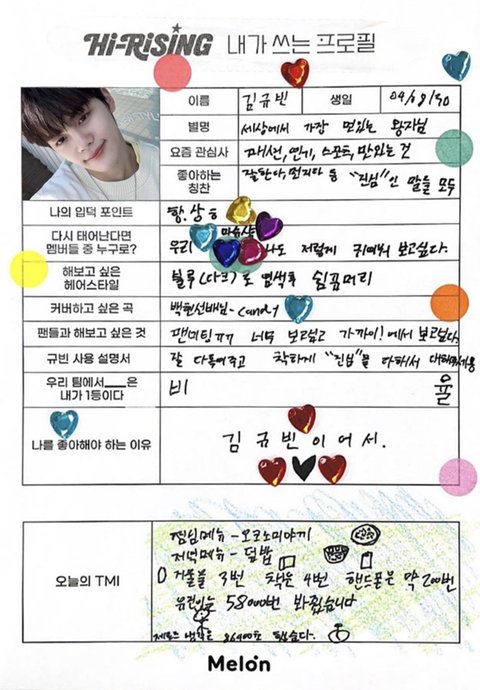 Hi-RiSiNG 내가 쓰는 프로필
이름 김규빈 생일 04/08/30
별명 세상에서 가장 멋있는 왕자님
요즘 관심사 패션, 연기, 스포츠, 맛있는 것
좋아하는 칭찬 잘한다, 멋지다 등 "진심"인 말들 모두
나의 입덕 포인트 항.상ㅎ
다시 태어난다면 멤버들 중 누구로? 우리 나도 저렇게 귀여워 보고싶다.
해보고 싶은 헤어스타일 블루(다크)로 염색후 쉼표머리
커버하고 싶은 곡 백현선배님-candy
팬들과 해보고 싶은 것 팬미팅ㅠㅠ 너무 보고싶고 가까이!에서 보고싶다.
규빈 사용 설명서 잘 다독여주고 착하게 "진심"을 다해서 대해주세용
우리 팀에서 은 내가 1등이다 비 율
나를 좋아해야 하는 이유 김규빈이어서.
오늘의 TMI
점심메뉴 - 오코노미야끼
저녁메뉴 - 덮밥
거울을 3번 책은 4번 핸드폰은 약 200번
58000번 봐줬습니다
86400초 했습니다.
Melon